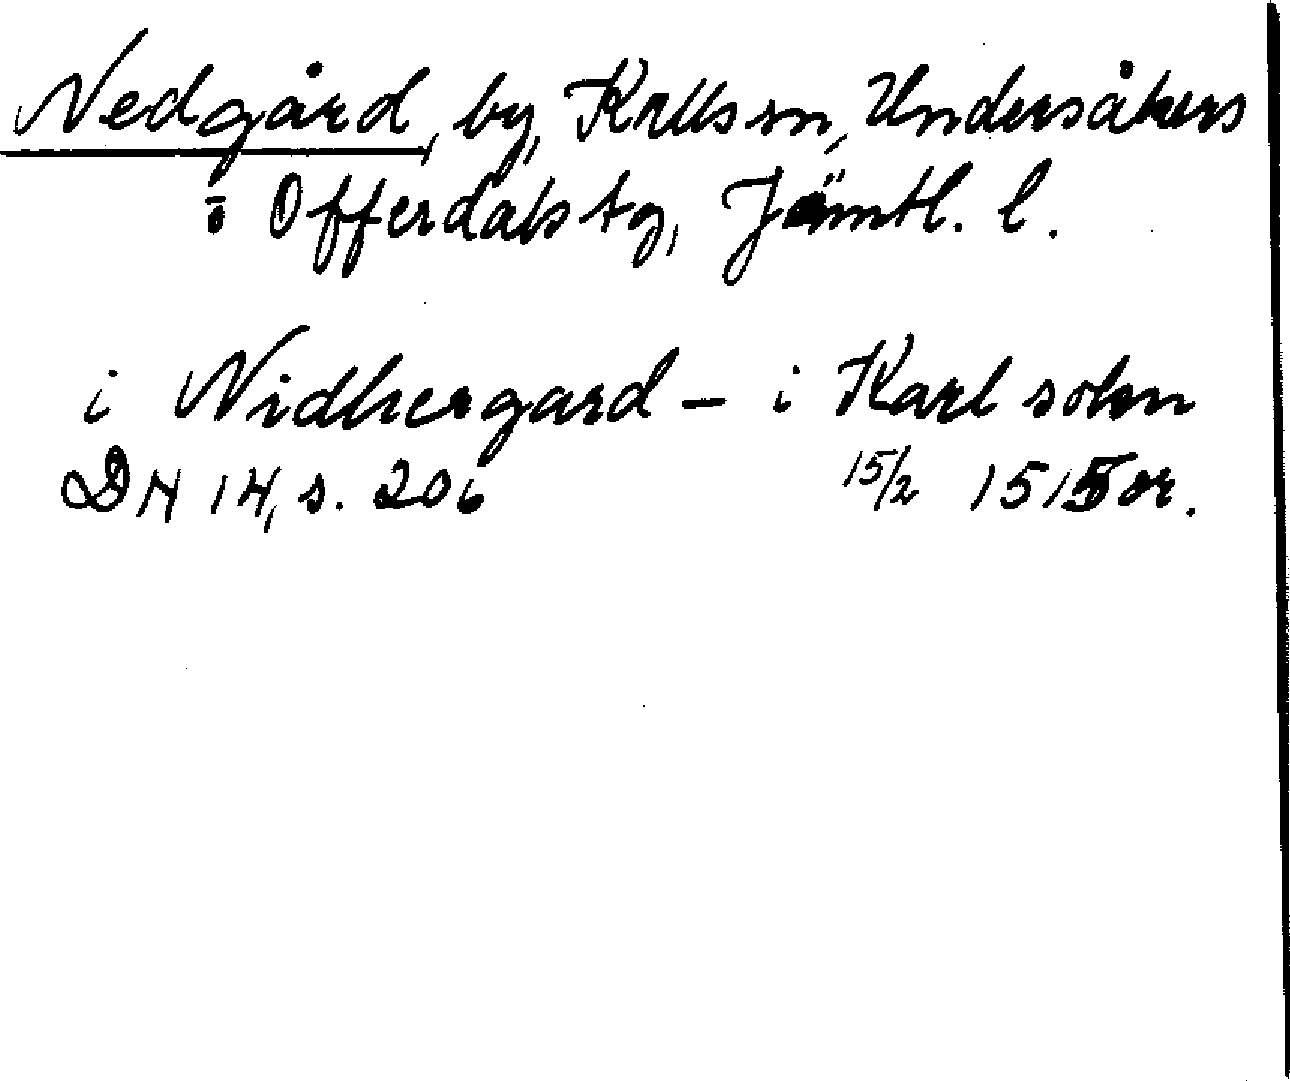 Nedgård, by, Kalls sn, Undersåkers
o Offerdals tg, Jämtl. l.
i Nidhergard – i Karl sokn
DN 14, s. 206 15/2 1515 or.